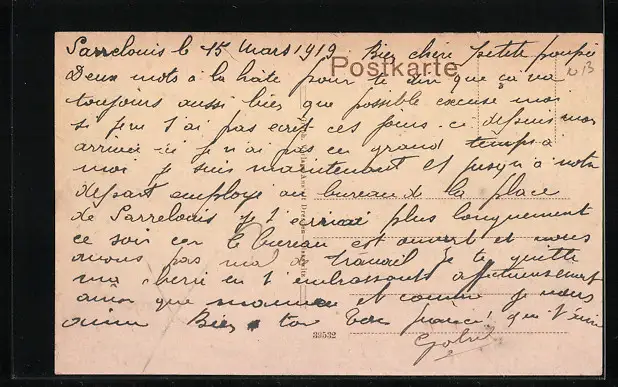 Sarrelouis le 15 Mars 1919 Bien chère petite poupée
Postkarte
Deux mots à la hate pour te dire que ca va
toujours aussi bien que possible excuse moi
si je ne t'ai pas ecrit ces jours-ci depuis mon
arrivée ici je n'ai pas eu grand temps à
moi je suis maintenant et jusqu'à notre
départ employé au bureau de la place
de Sarrelouis je t'ecrirai plus longuement
ce soir car le bureau est ouvert et nous
avons pas mal de travail Je te quitte
ma cherie en t'embrassant affectueusement
ainsi que maman et comme je vous
aime Bien à toi Ton fiancé qui t'aime
Gabriel
33532